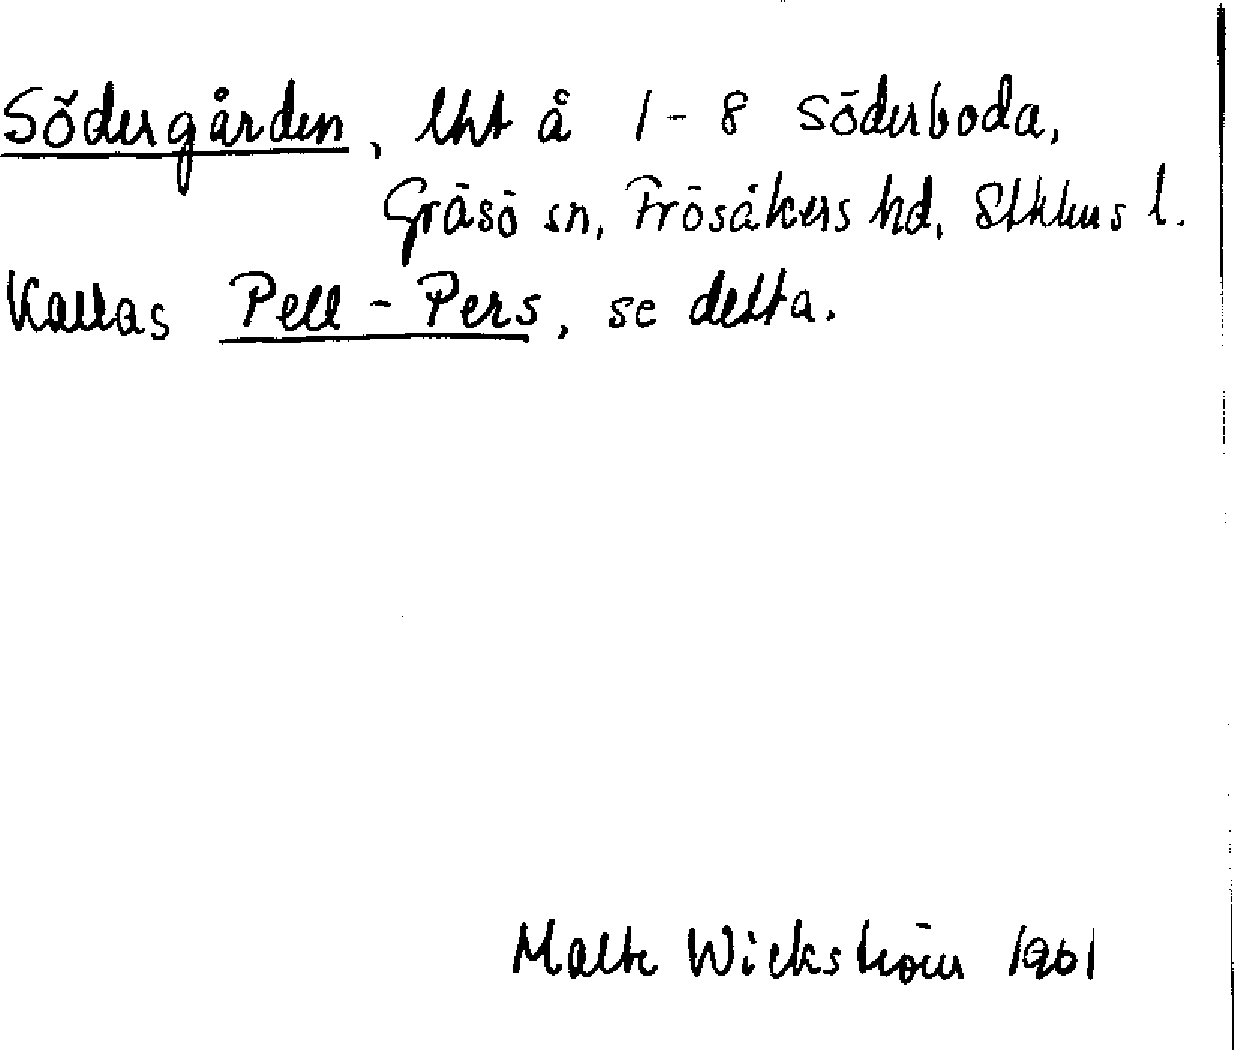 Södergården, lht å 1-8 Söderboda,
Gräsö sn, Frösåkers hd, Sthlms l.
Kallas Pell-Pers, se detta.
Malte Wickström 1961